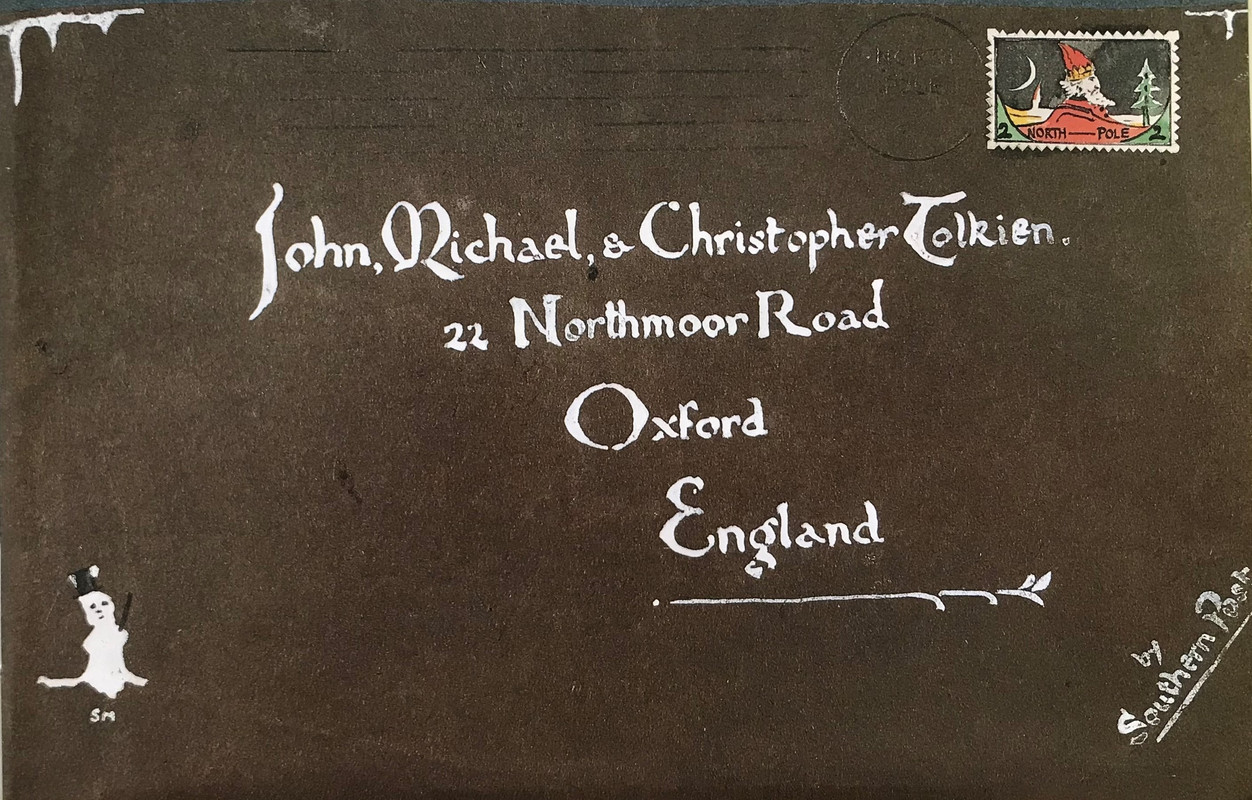 NORTH POLE
2 NORTH — POLE 2
John, Michael, & Christopher Tolkien.
22 Northmoor Road
Oxford
England
SM
by
Southern Post